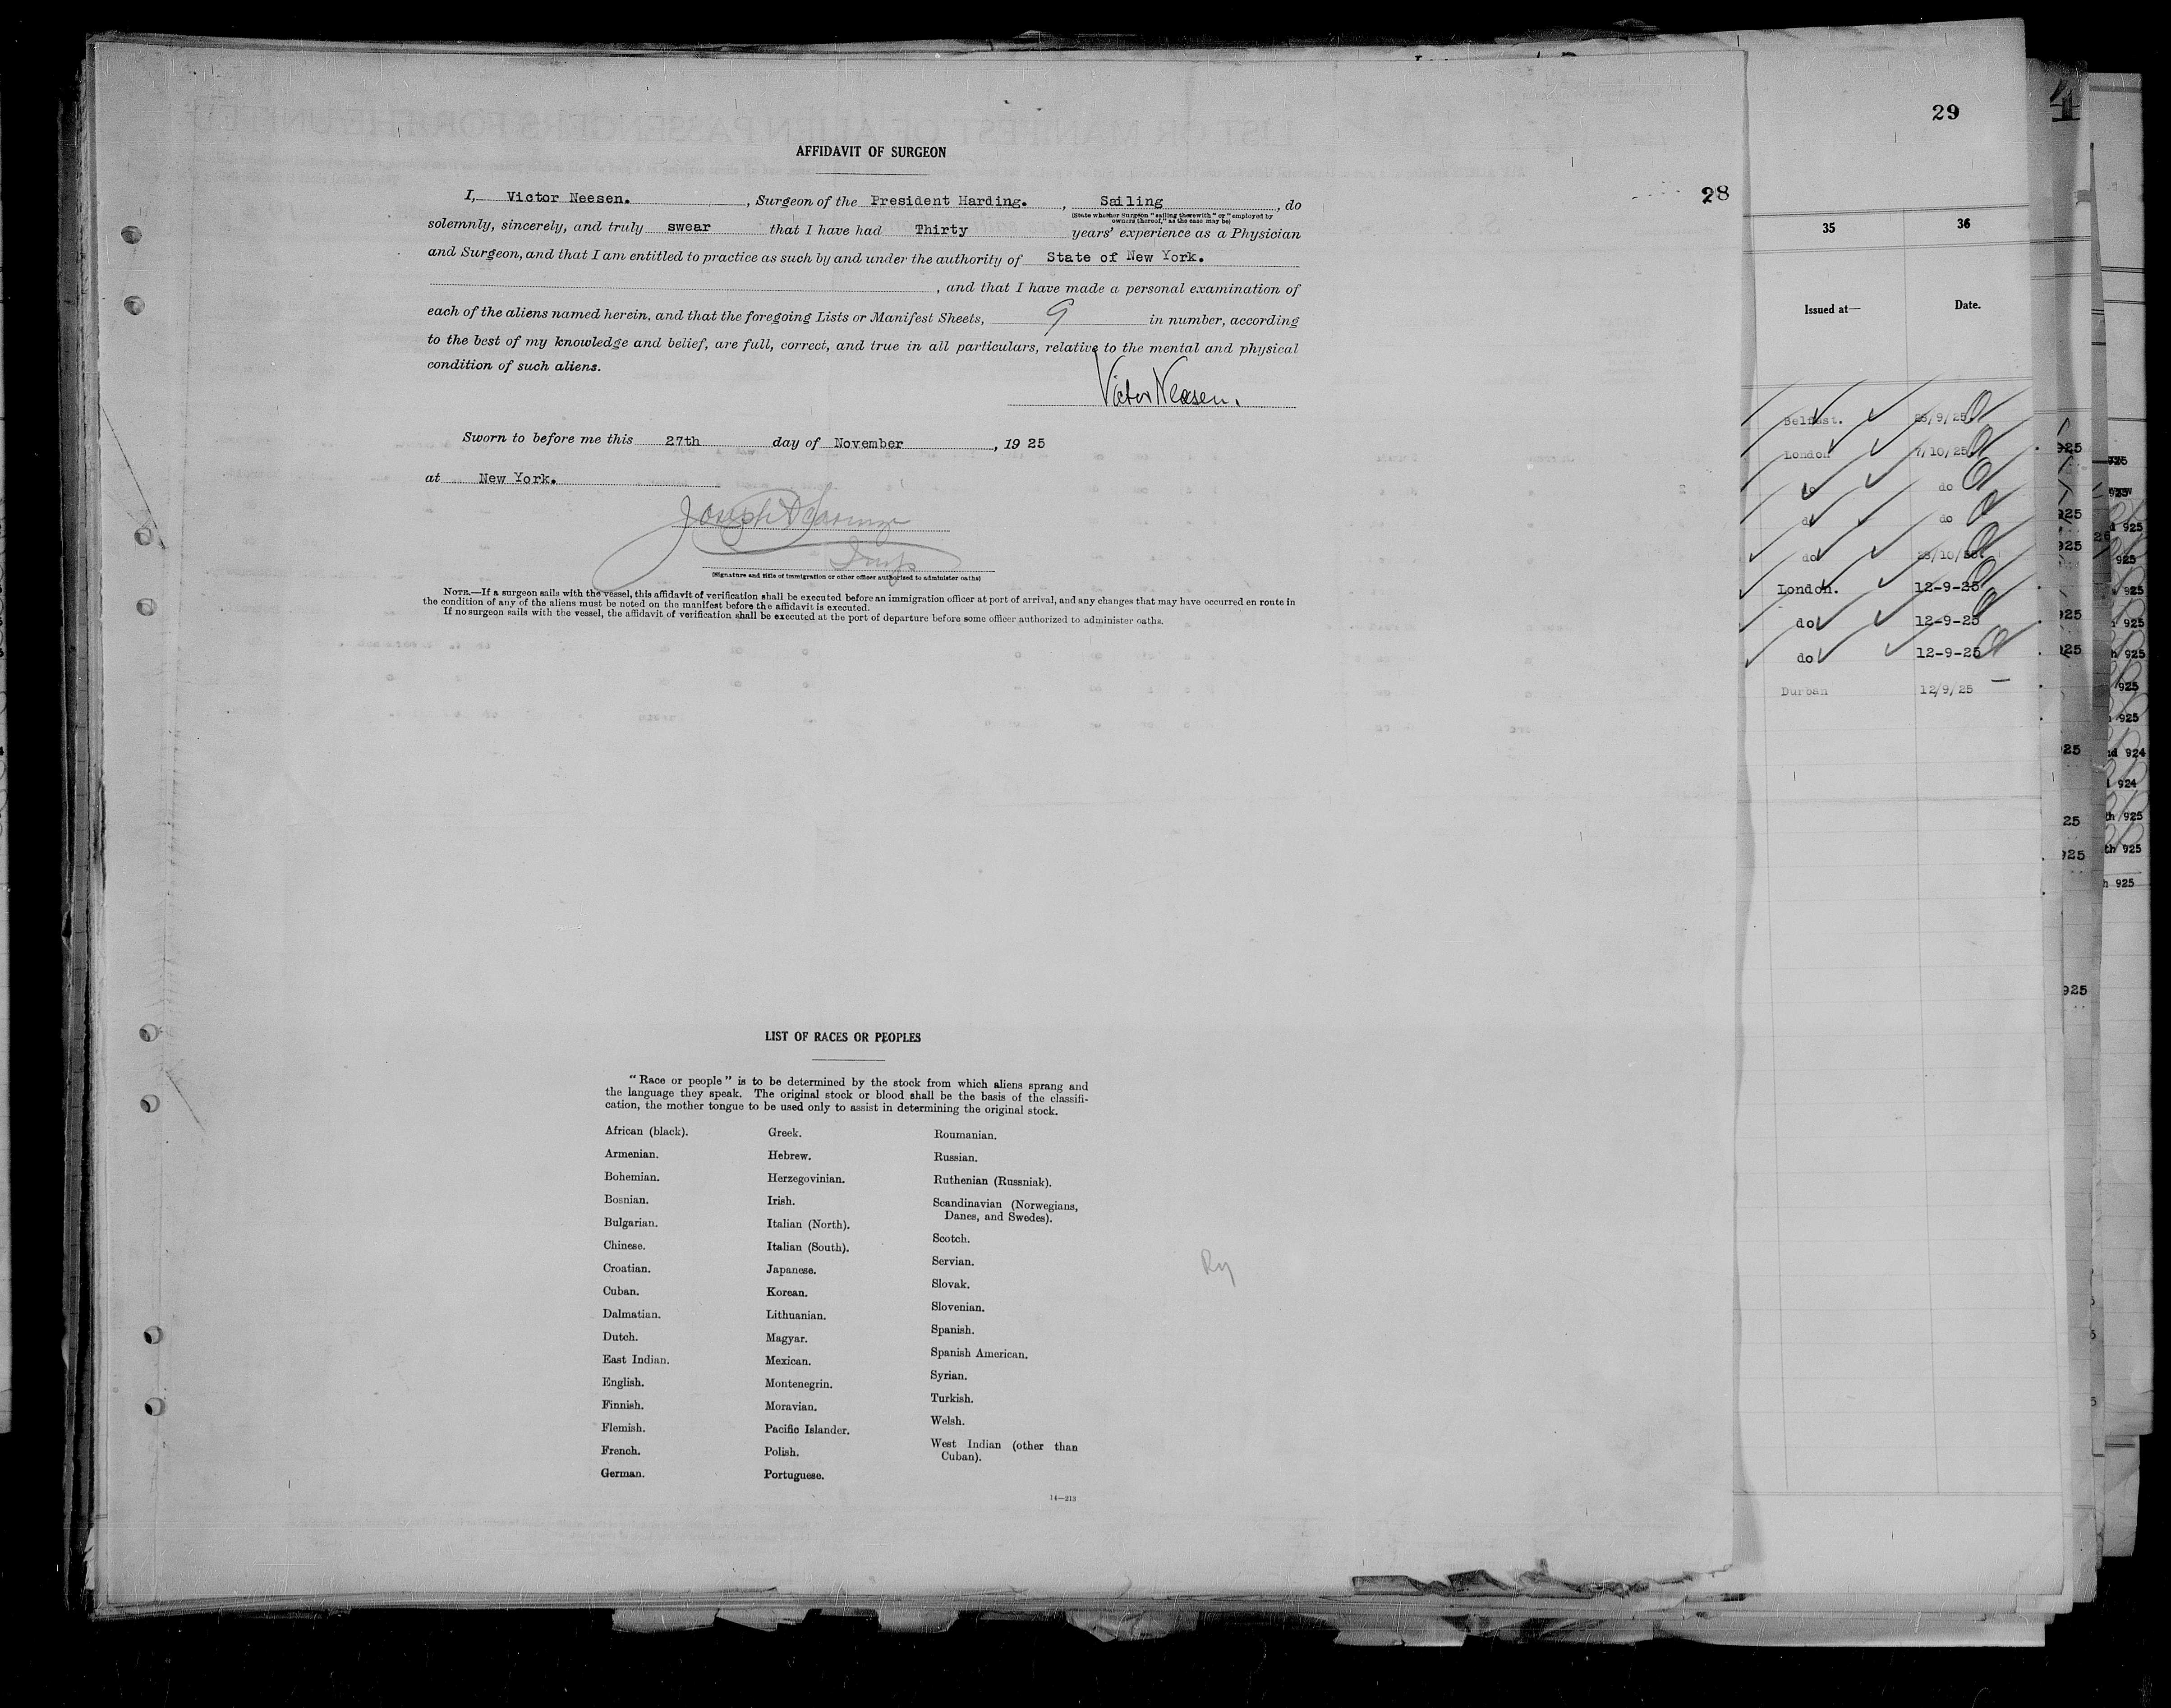 AFFIDAVIT OF SURGEON
28
I, Victor Neesen. , Surgeon of the President Harding. , Sailing , do
(State whether Surgeon "sailing therewith" or "employed by
owners thereof," as the case may be)
solemnly, sincerely, and truly swear that I have had Thirty years' experience as a Physician
and Surgeon, and that I am entitled to practice as such by and under the authority of State of New York.
, and that I have made a personal examination of
each of the aliens named herein, and that the foregoing Lists or Manifest Sheets, 9 in number, according
to the best of my knowledge and belief, are full, correct, and true in all particulars, relative to the mental and physical
condition of such aliens.
Victor Neesen.
Sworn to before me this 27th day of November , 19 25
at New York.
(Signature and title of immigration or other officer authorized to administer oaths)
NOTE.—If a surgeon sails with the vessel, this affidavit of verification shall be executed before an immigration officer at port of arrival, and any changes that may have occurred en route in
the condition of any of the aliens must be noted on the manifest before the affidavit is executed.
If no surgeon sails with the vessel, the affidavit of verification shall be executed at the port of departure before some officer authorized to administer oaths.
LIST OF RACES OR PEOPLES
"Race or people" is to be determined by the stock from which aliens sprang and
the language they speak. The original stock or blood shall be the basis of the classifi-
cation, the mother tongue to be used only to assist in determining the original stock.
African (black).
Armenian.
Bohemian.
Bosnian.
Bulgarian.
Chinese.
Croatian.
Cuban.
Dalmatian.
Dutch.
East Indian.
English.
Finnish.
Flemish.
French.
German.
Greek.
Hebrew.
Herzegovinian.
Irish.
Italian (North).
Italian (South).
Japanese.
Korean.
Lithuanian.
Magyar.
Mexican.
Montenegrin.
Moravian.
Pacific Islander.
Polish.
Portuguese.
Roumanian.
Russian.
Ruthenian (Russniak).
Scandinavian (Norwegians,
Danes, and Swedes).
Scotch.
Servian.
Slovak.
Slovenian.
Spanish.
Spanish American.
Syrian.
Turkish.
Welsh.
West Indian (other than
Cuban).
14—213
29
35 36
Issued at— Date.
Belfast. 28/9/25
London 7/10/25
do do
do do
do
London. 12-9-25
do 12-9-25
do 12-9-25
Durban 12/9/25